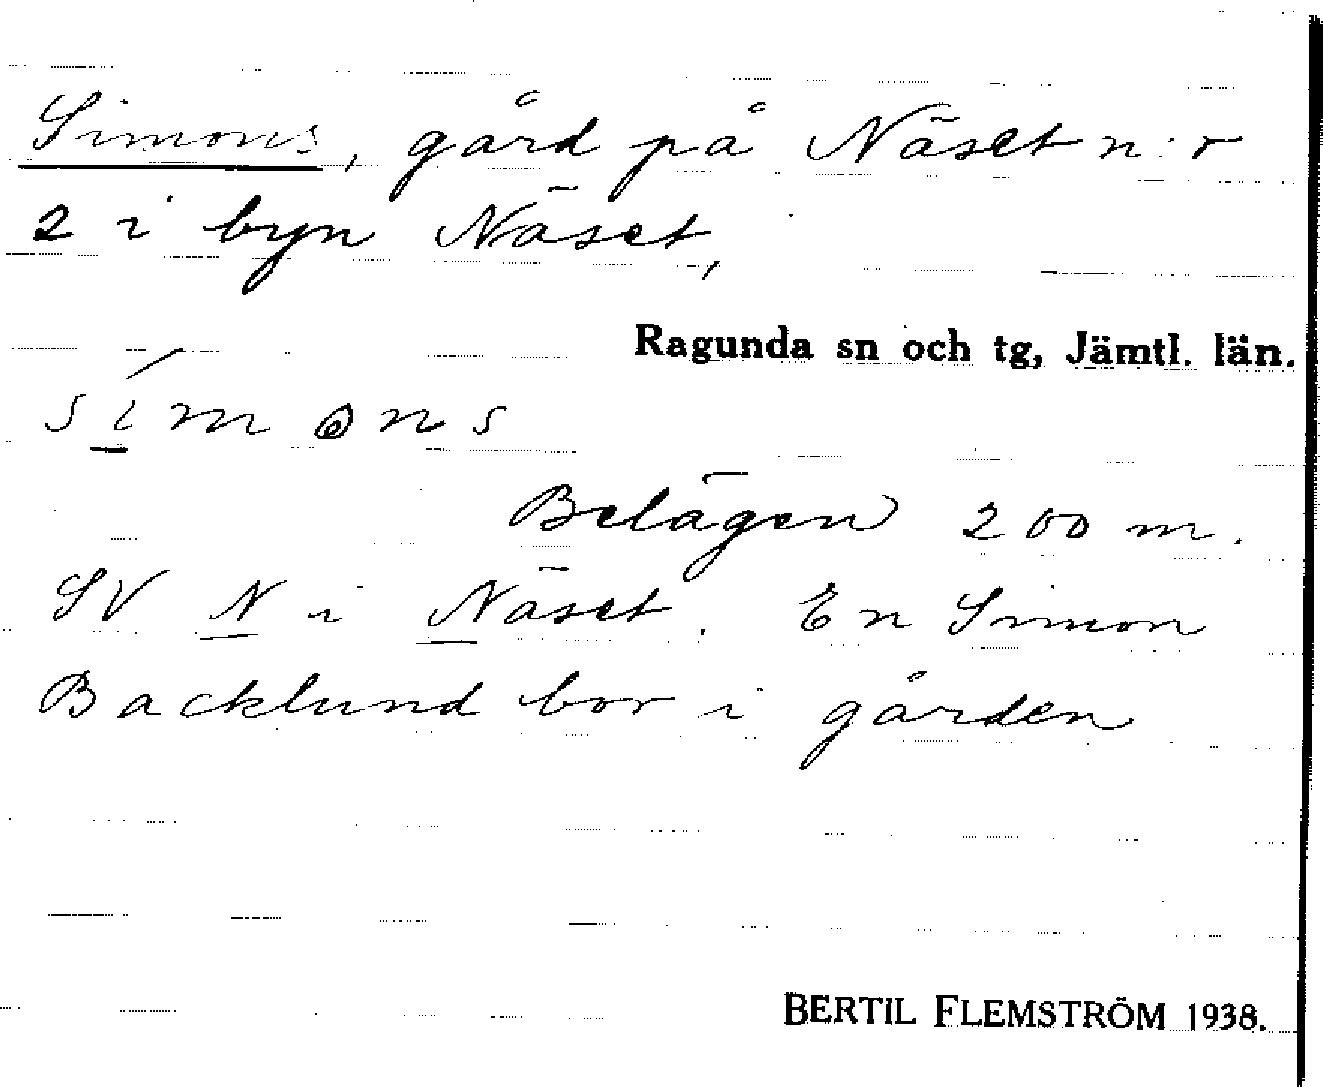 Simons, gård på Näset n:r
2 i byn Näset,
Ragunda sn och tg, Jämtl. län.
Belägen 200 m.
SV N i Näset. En Simon
Backlund bor i gården
BERTIL FLEMSTRÖM 1938.